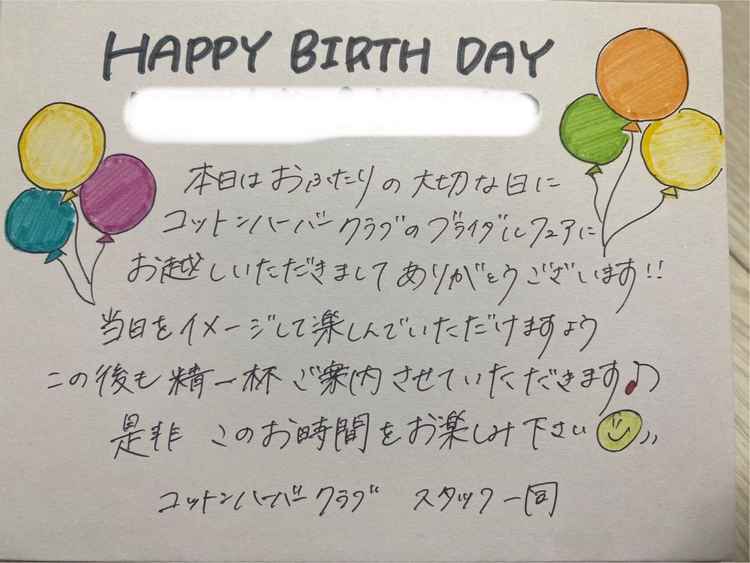 HAPPY BIRTH DAY
本日はおふたりの大切な日に
コットンハーバークラブのブライダルフェアに
お越しいただきましてありがとうございます!!
当日をイメージして楽しんでいただけますよう
この後も精一杯ご案内させていただきます♪
是非 このお時間をお楽しみ下さい
コットンハーバークラブ スタッフ一同